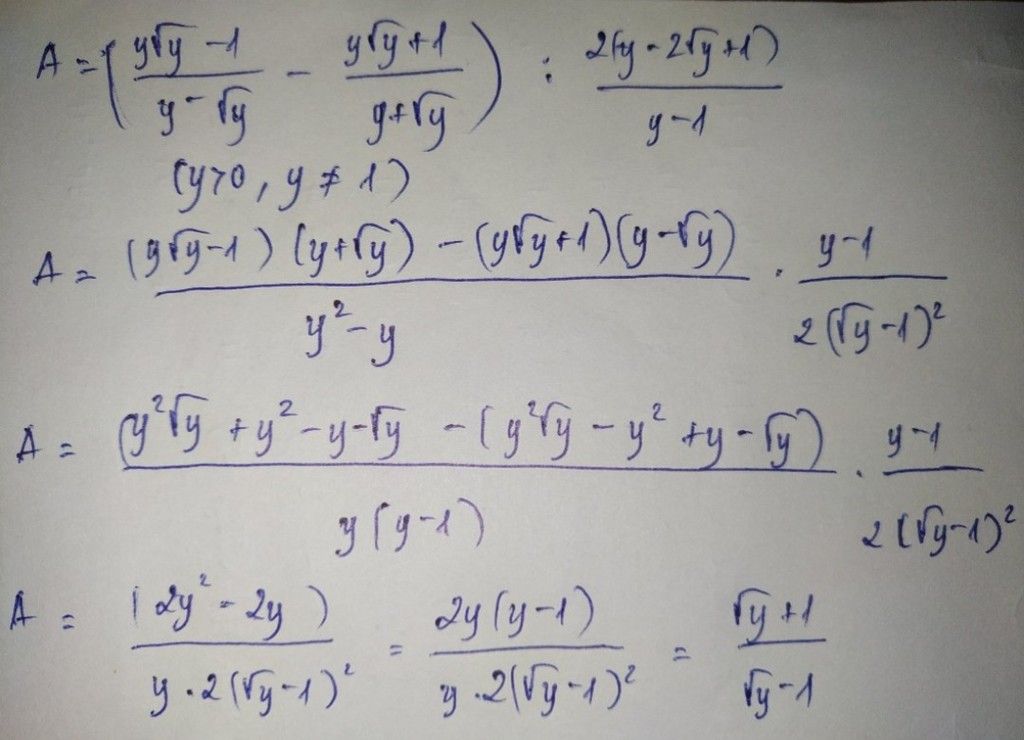 A = (y√y - 1 / y - √y - y√y + 1 / y + √y) : 2(y - 2√y + 1) / y - 1
(y > 0, y ≠ 1)
A = (y√y - 1)(y + √y) - (y√y + 1)(y - √y) / y² - y · y - 1 / 2(√y - 1)²
A = (y²√y + y² - y - √y - (y²√y - y² + y - √y) / y(y - 1) · y - 1 / 2(√y - 1)²
A = (2y² - 2y) / y · 2(√y - 1)² = 2y(y - 1) / y · 2(√y - 1)² = √y + 1 / √y - 1